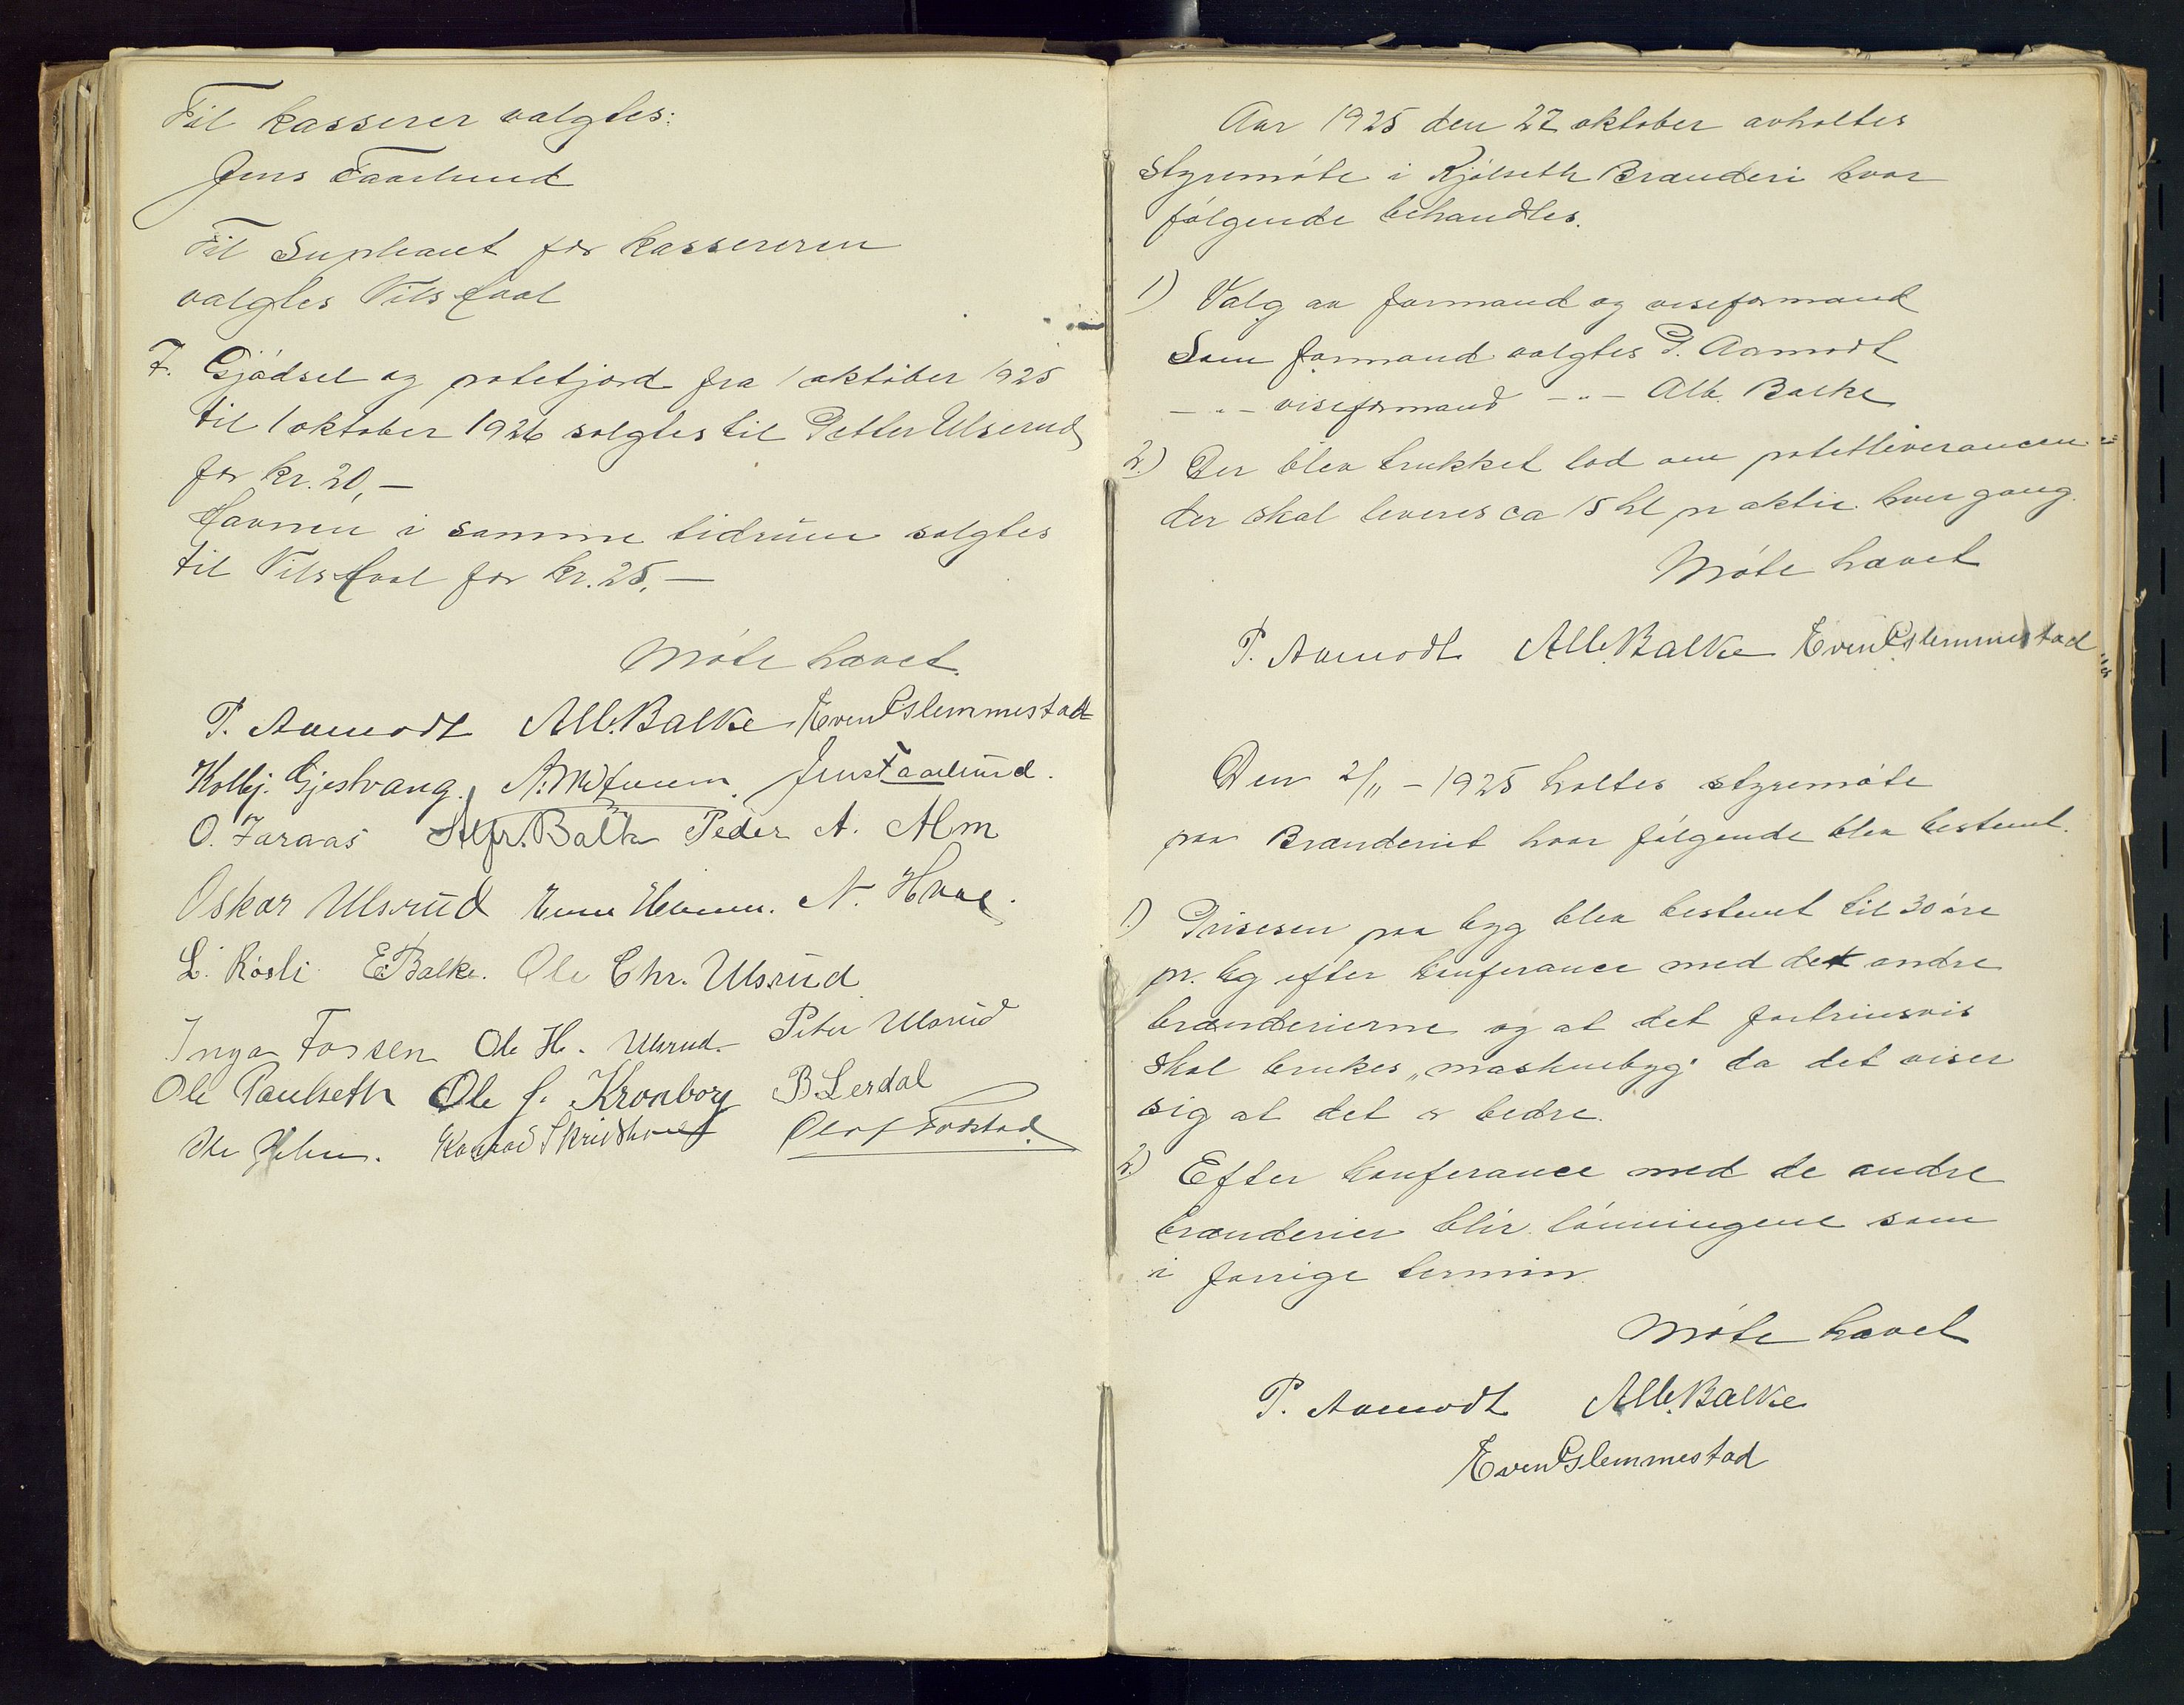 Til kasserer valgtes:
Jens Faarlund
Til Supleant for kassereren
valgtes Nils Hval
7. Gjødsel og potetjord fra 1 oktober 1925
til 1 oktober 1926 solgtes til Petter Ulsrud
for kr. 20,—
Havnen i samme tidrum solgtes
til Nils Hval for kr. 25,—
Møte hævet.
P. Aamodt Alb. Balke Even Gslemmestad
Kolbj. Gjestvang. Jens Faarlund.
O. Faraas Alfr. Balke Peder A. Alm
Oskar Ulsrud N. Hval.
L. Røsli E. Balke. Ole Chr. Ulsrud
Inga Fossen Ole H. Ulsrud. Peter Ulsrud
Ole Paulseth Ole J. Kronborg B. Lerdal
Ole Olaf Fodstad.
Aar 1925 den 27 oktober avholtes
styremøte i Kjølseth Brænderi hvor
følgende behandles.
1) Valg av formand og viseformand
Som formand valgtes P. Aamodt
— „ — viseformand — „ — Alb. Balke
2.) Der blev trukket lod om potetleverancen
der skal leveres ca 15 hl pr aktie hver gang.
Møte hævet
P. Aamodt Alb. Balke Even Gslemmestad
Den 2/11 – 1925 holtes styremøte
paa Brænderiet hvor følgende blev bestemt.
1.) Prisesen paa byg blev bestemt til 30 øre
pr. kg efter konferance med det andre
brænderierne og at det fortrinsvis
skal brukes „maskinbyg" da det viser
sig at det er bedre.
2.) Efter konferance med de andre
brænderier blir lønningene som
i forrige termin
Møte hævet
P. Aamodt Alb. Balke
Even Gslemmestad